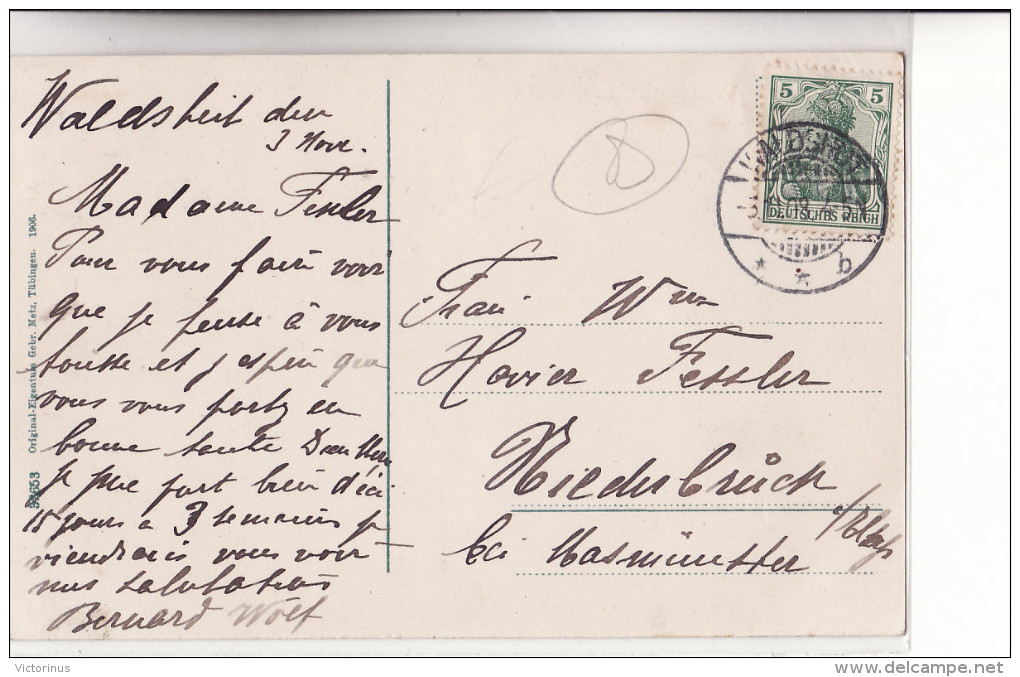 Waldshut den
3 Nov.
Madame Fessler
Pour vous fair voir
que je pense à vous
tousse et j espèn que
vous vous portz en
bonne sante Dieu
je pue fort bien d'éci
15 jours a 3 semaines je
viendrais vous voir
mes salutations
Bernard Wolf
Original-Eigentum Gebr. Metz, Tübingen. 1908.
5 5
WALDSHUT
DEUTSCHES REICH
* * b
8
Frau Wwe
Havier Fessler
Niederbrück
bei Masmünster
i/Elsass
Victorinus
delcampe.net